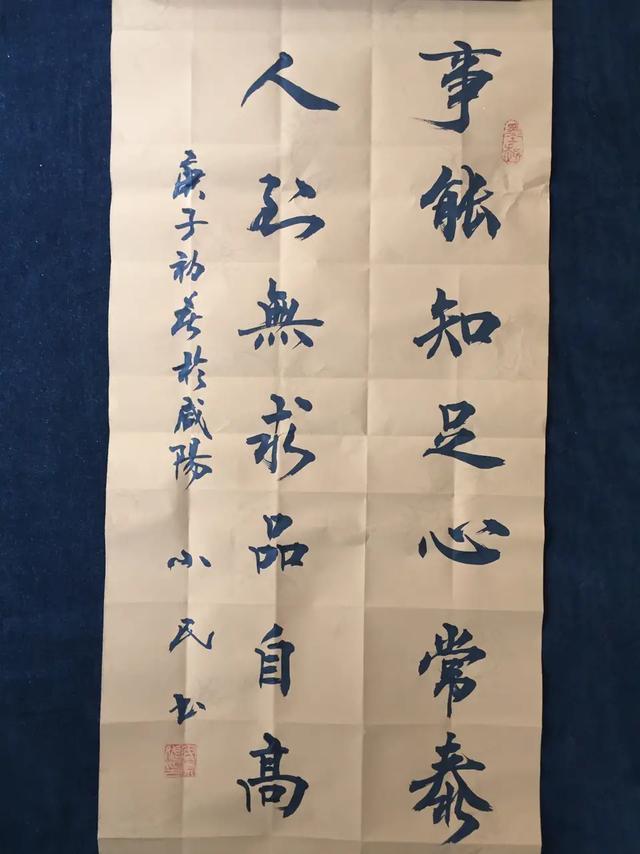 事能知足心常泰
人到無求品自高
庚子初春於咸陽
小民书